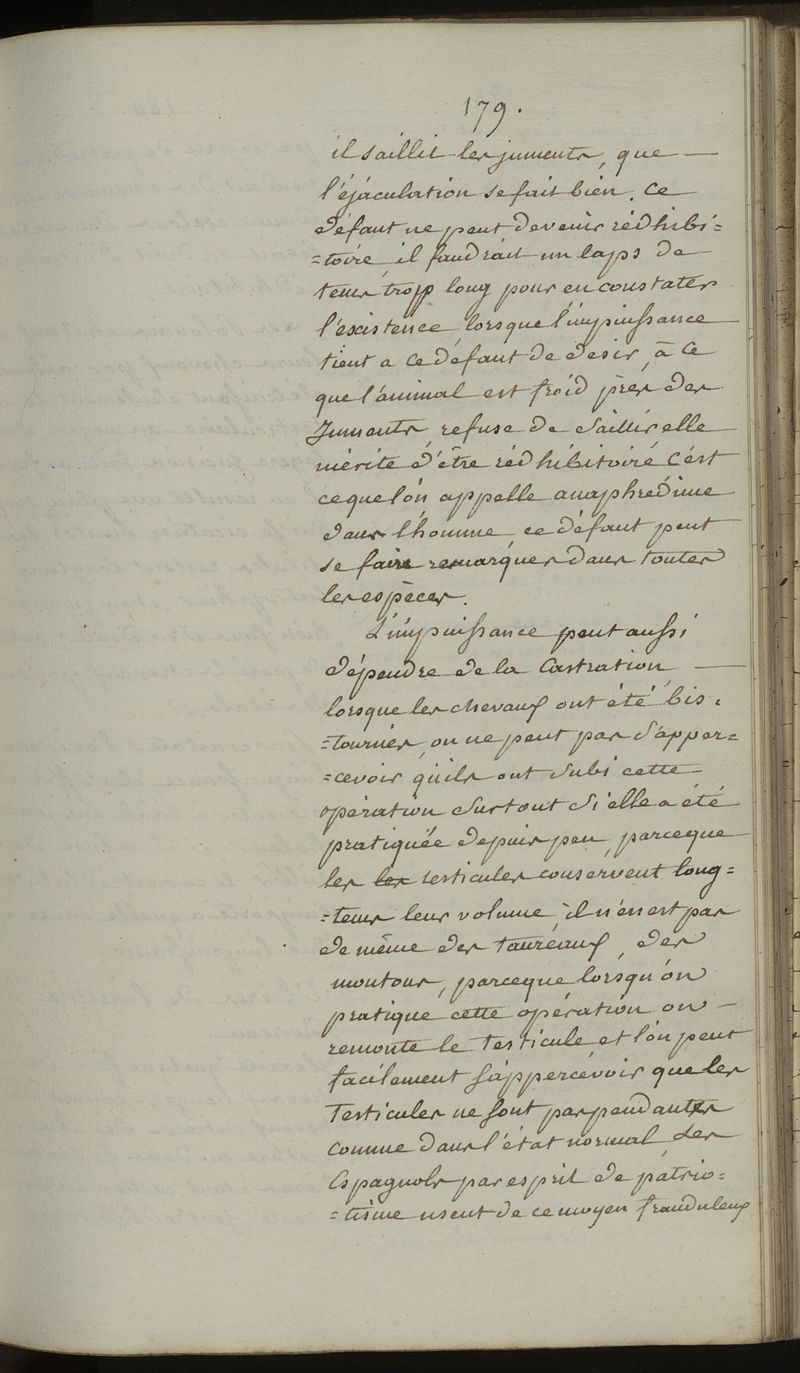 179.
il saillit les juments, que —
l'éjaculation se fait bien. Ce
défaut ne peut devenir rédhibi=
=toire, il faudrait un laps de
tems trop long pour en constater
l'existence, lorsque l'impuissance
tient a ce défaut de desir, à ce
que l'animal est froid près des
Juments, refuse de saillir elle
mérite d'être rédhibitoire c'est
ce que l'on appelle anaphrédime
dans l'homme, ce défaut peut
se faire remarquer dans toutes
les espèces.
L'impuissance peut aussi
dépendre de la Castration, —
lorsque les chevaux ont été bis.
=tournés, on ne peut pas s'apper=
=cevoir qu'ils ont subi cette
opération surtout si elle a été
pratiquée depuis peu, parceque
les les testicules conservent long=
=tems leur volume, il n'en est pas
de même des taureaux, des
moutons, parceque lorsqu'on
pratique cette opération on —
remonte le testicule et l'on peut
facilement s'appercevoir que les
Testicules ne sont pas pendants
comme dans l'état normal, Les
Espagnols par esprit de patrio=
=tisme usent de ce moyen frauduleux